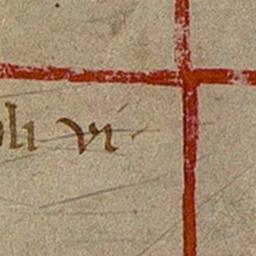 li vi